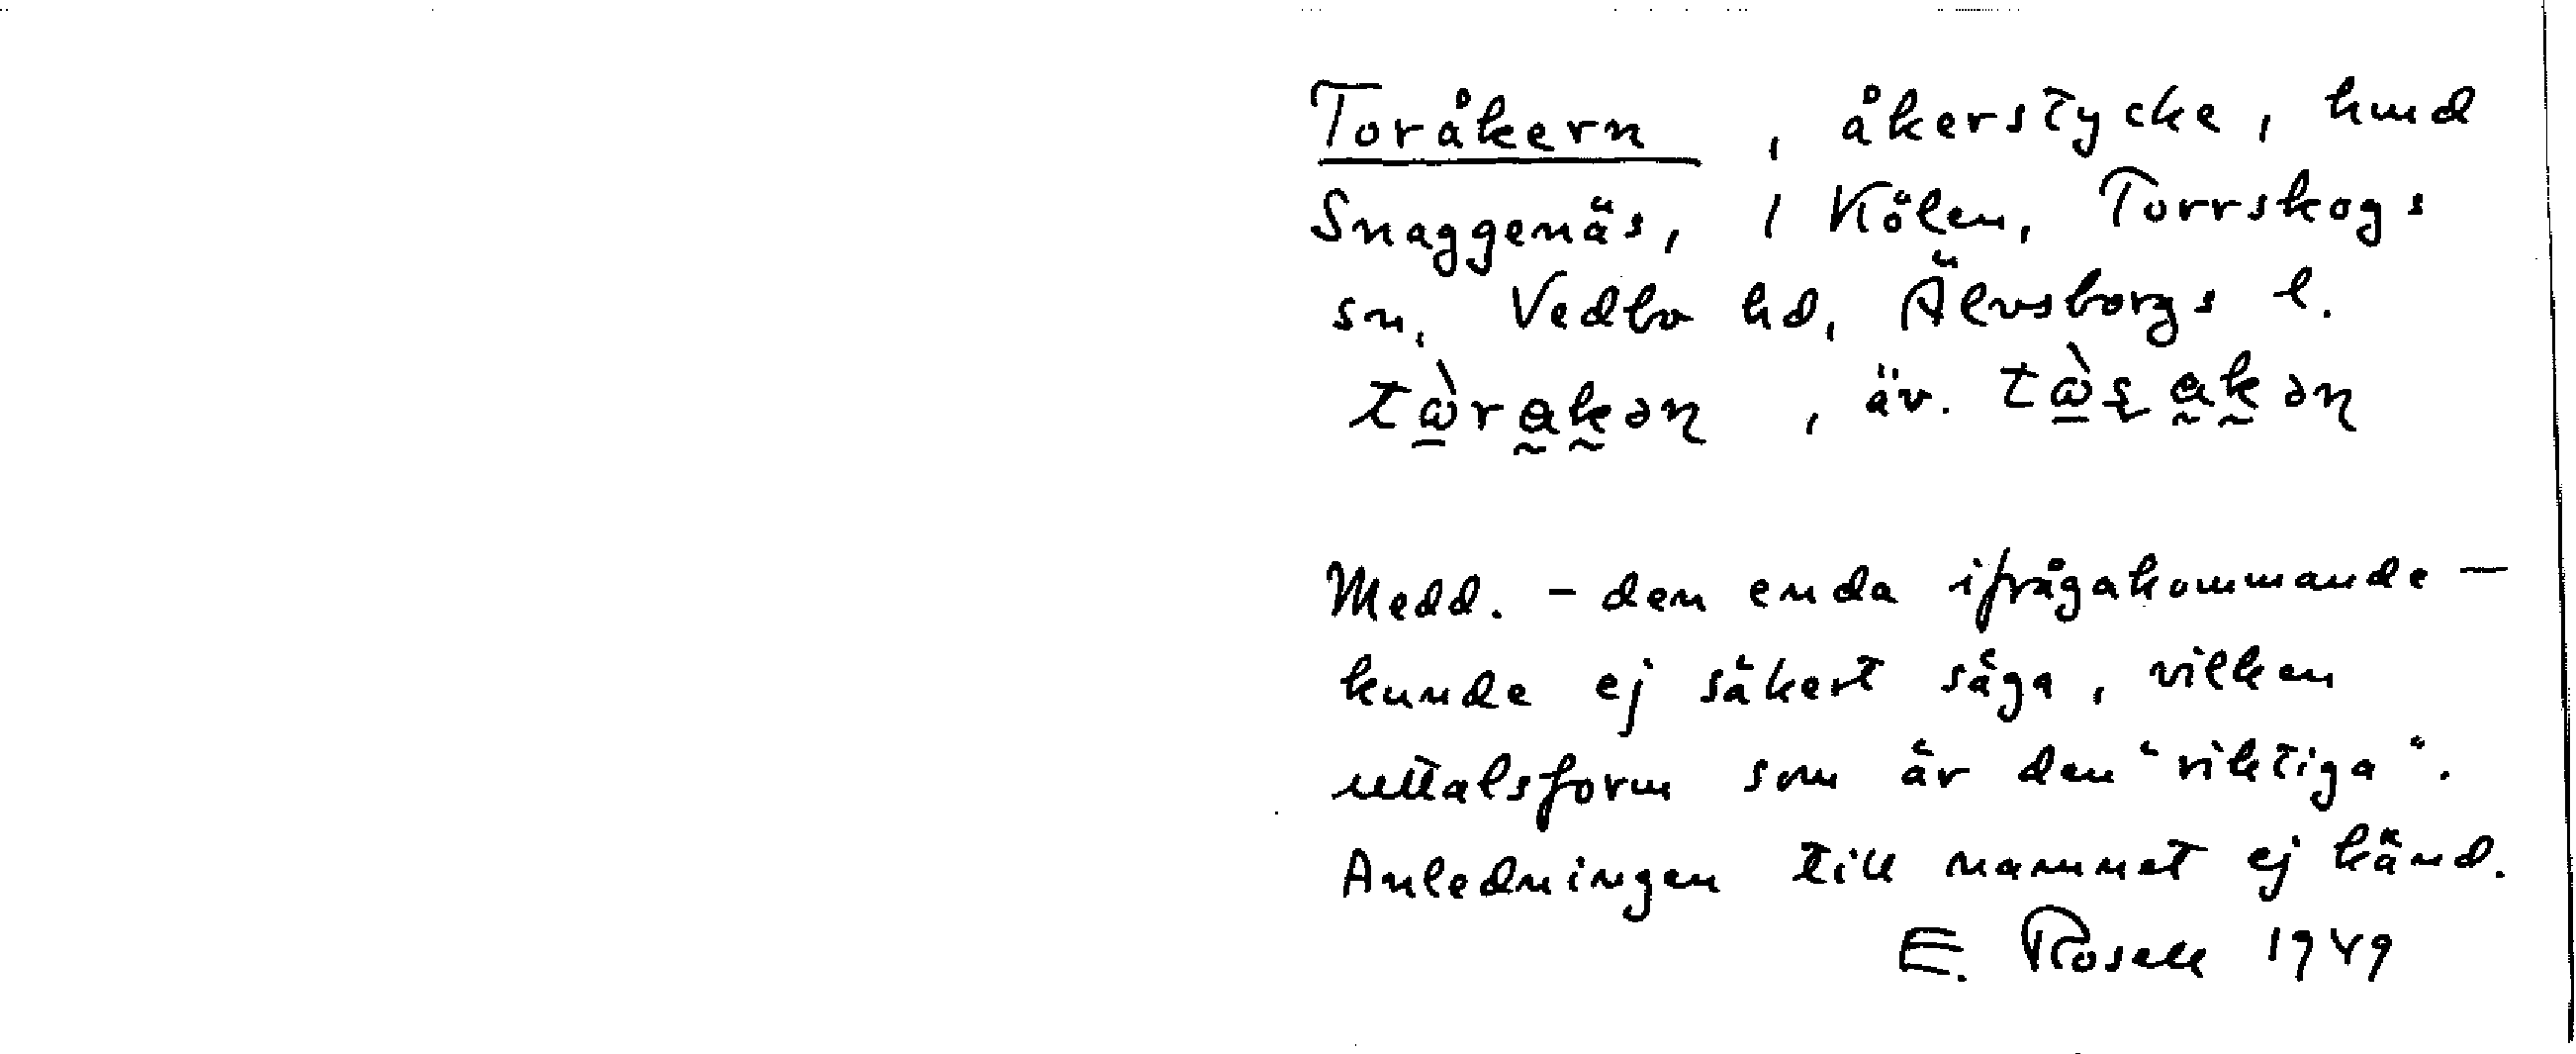 Toråkern, åkerstycke, hmd
Snaggenäs, i Kölen, Torrskogs
sn, Vedbo hd, Älvsborgs l.
, äv.
Medd. - den enda ifrågakommande —
kunde ej säkert säga, vilken
uttalsform som är den "riktiga".
Anledningen till namnet ej känd.
E. Rosell 1949